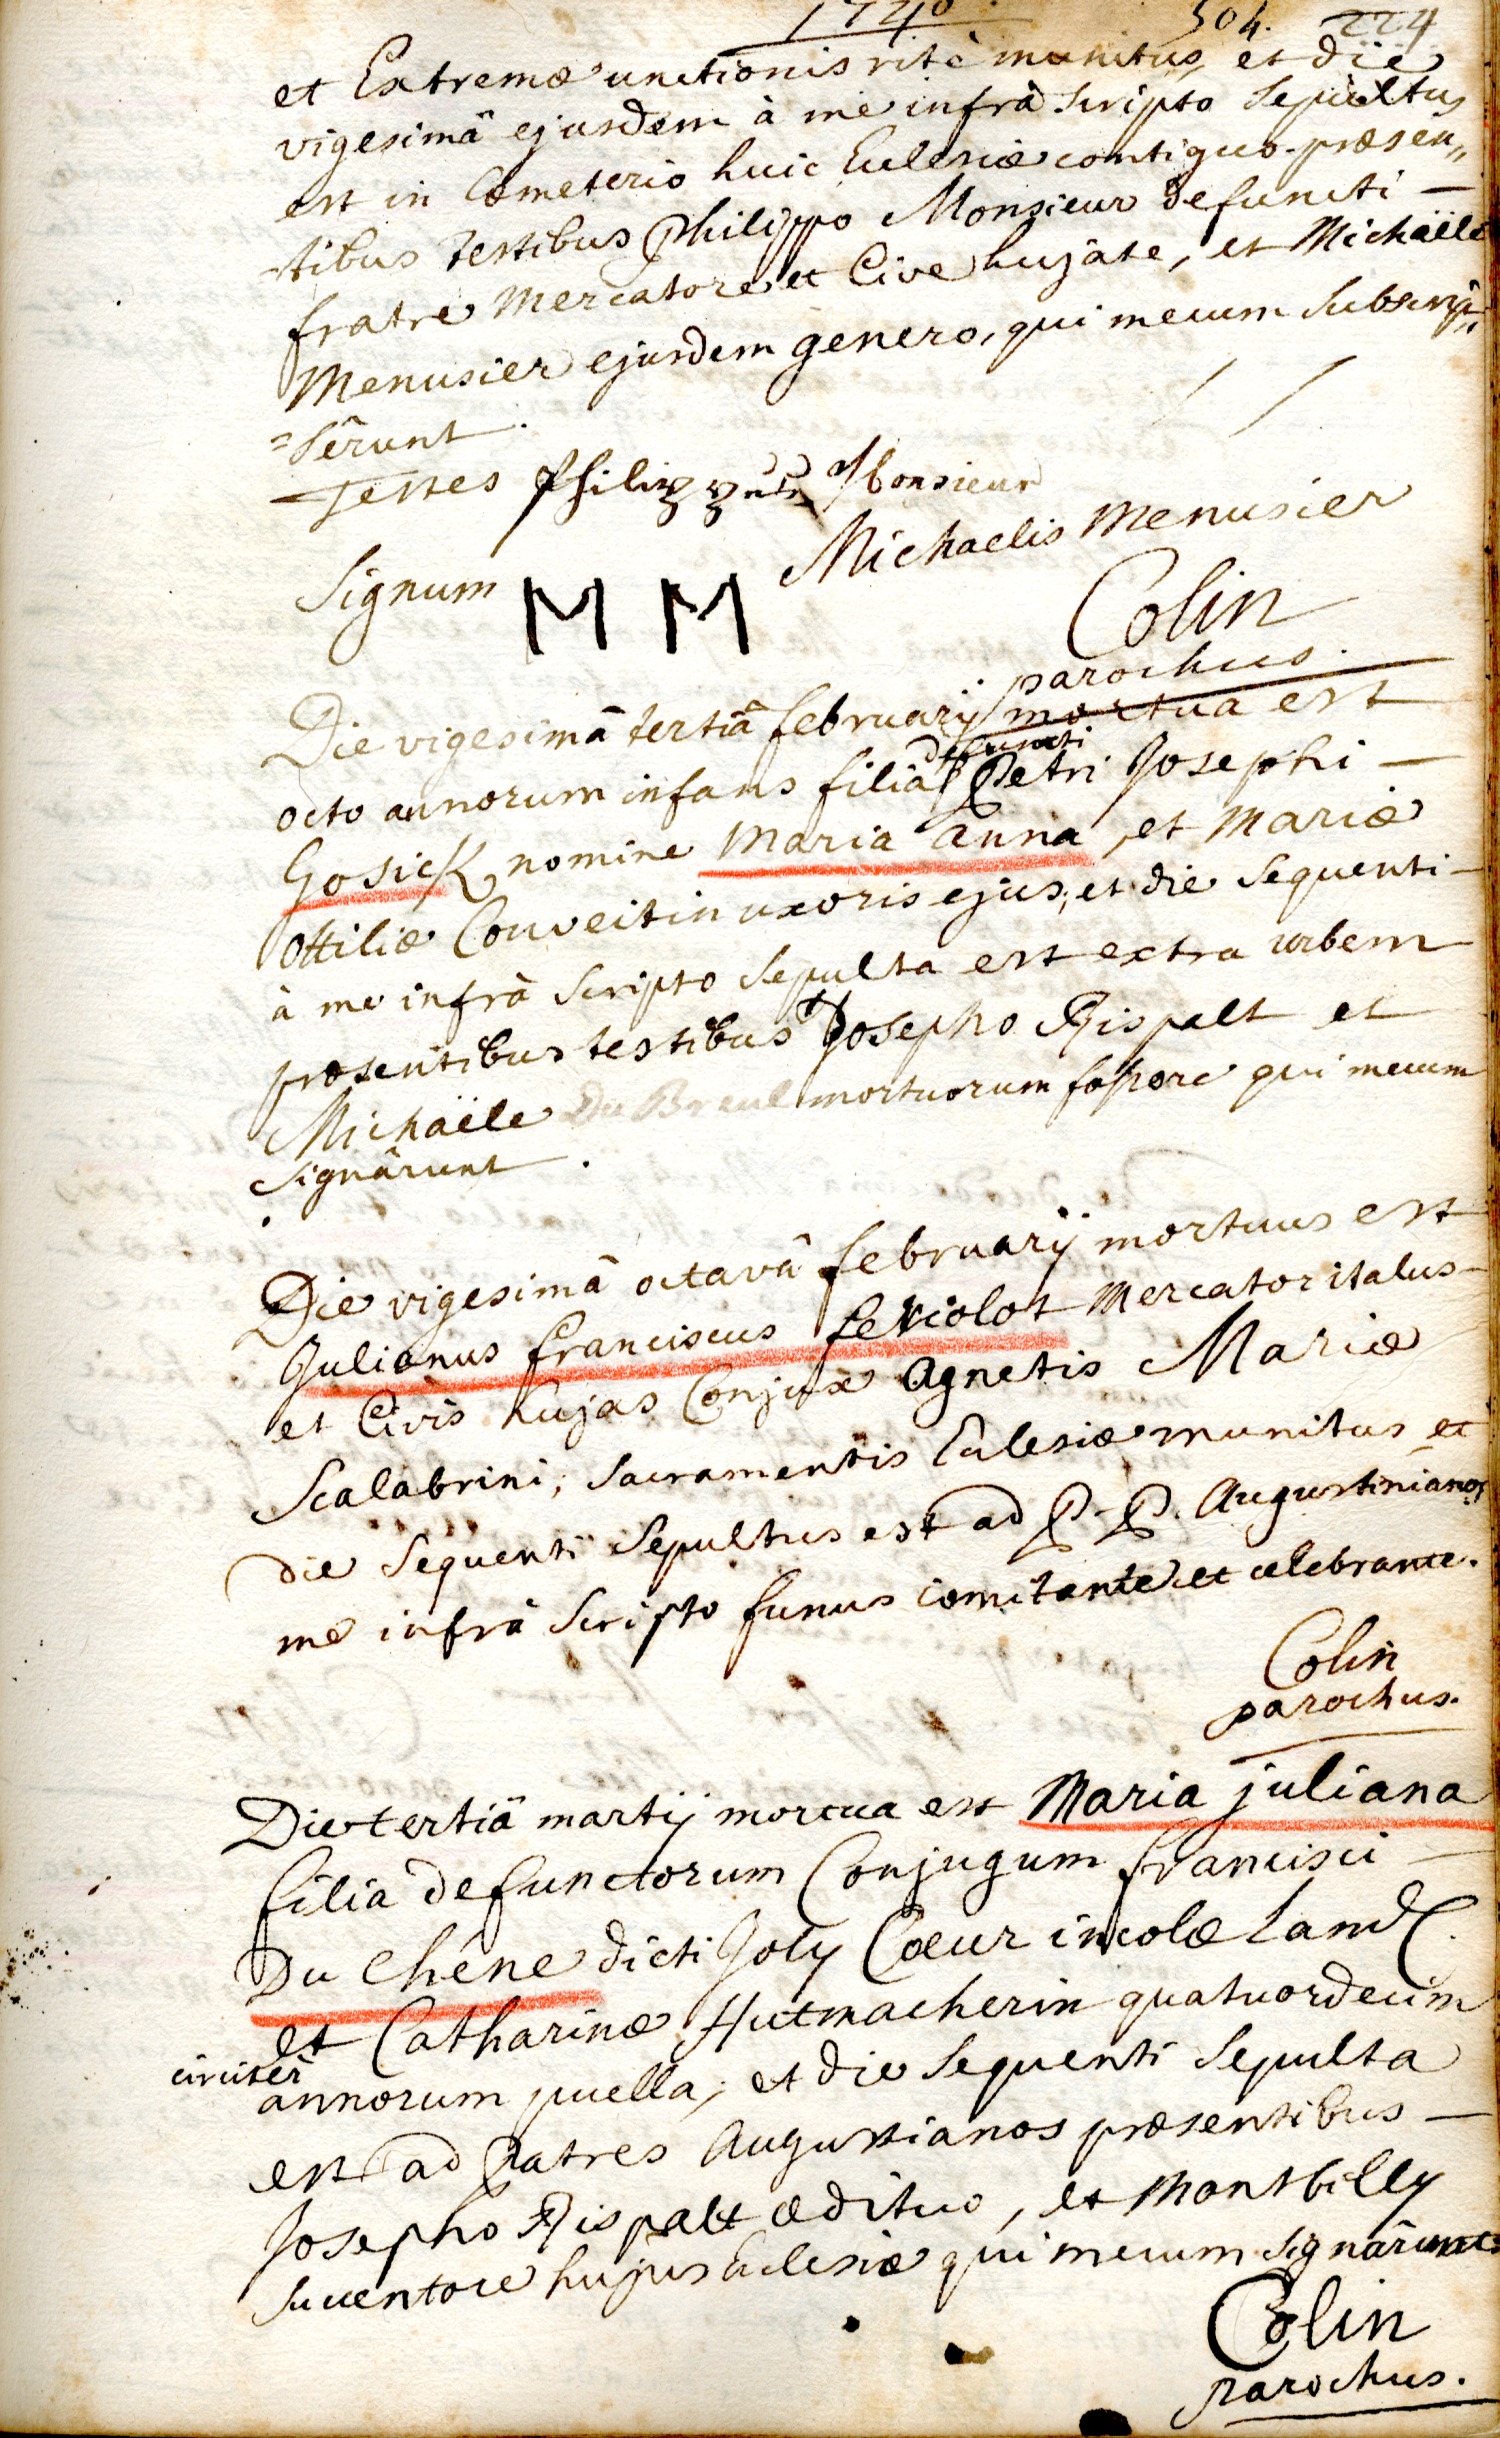 1740 504. 224
et Extremæ unctionis ritè munitus, et die
vigesimâ ejusdem à me infrà scripto sepultus
est in Cœmeterio huic Ecclesiæ contiguo præsen„
-tibus testibus Philippo Monsieur defuncti —
fratre Mercatore et Cive hujate, et Michaële
Menusier ejusdem genero, qui mecum subscrip„
=sêrunt.
Testes Philippus Monsieur
Signum M M Michaelis Menusier
Colin
parochus.
Die vigesimâ tertiâ februarij mortua est
defuncti
octo annorum infans filia Petri Josephi —
Gosiek, nomine Maria Anna, et Mariæ
Ottiliæ Conveitin uxoris ejus; et die sequenti —
à me infrà scripto sepulta est extra urbem
præsentibus testibus Josepho Rispalt et
Michaële Du Breul mortuorum fossore qui mecum
signârunt.
Die vigesimâ octavâ februarij mortuus est
Julianus franciscus feriolot Mercator italus
et Civis hujas Conjux Agnetis Mariæ
Scalabrini, sacramentis Ecclesiæ munitus et
die sequenti sepultus est ad P.P. Augustinianos
me infrà scripto funus comitante et celebrante.
Colin
parochus.
Die tertiâ martij mortua est Maria juliana
filia defunctorum Conjugum francisci —
Du Chêne dicti Joly Cœur incolæ Land
et Catharinæ Hutmacherin quatuordecim
circiter
annorum puella; et die sequenti sepulta
est ad Patres Augustianos præsentibus —
Josepho Rispalt ædituo, et Montbilly
succentore hujus Ecclesiæ qui mecum signârunt
Colin
parochus.